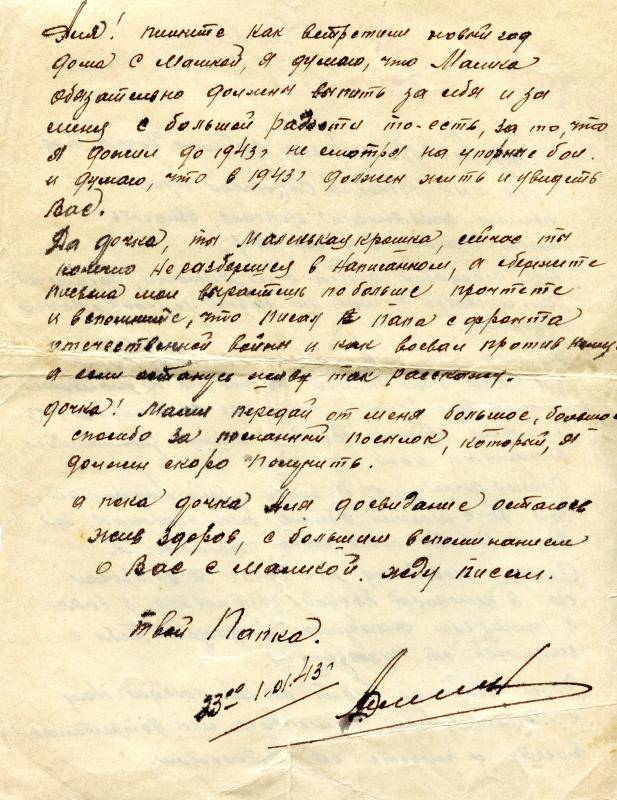 Аля! пишите как встретили новый год
дома с Мамкой, я думаю, что Мамка
обязательно должены выпить за себя и за
меня с большой радости то-есть, за то, что
я дожил до 1943г не смотря на упорные бои.
и думаю, что в 1943г должен жить и увидеть
Вас.
Да дочка, ты Маленькая крошка, сейчас ты
конечно не разберешся в написанном, а сбережите
письма мои вырастишь побольше прочтете
и вспомните, что писал папа с фронта
отечественной войны и как воевал против
а если останусь живу так расскажу.
дочка! Маме передай от меня большое, большое
спосибо за посланный посылок, который, я
должен скоро получить.
а пока дочка Аля досвидание остаюсь
жив здоров, с большим вспоминанием
о Вас с Мамкой. жду писем.
твой Папка.
23⁰⁰ 1.01.43г